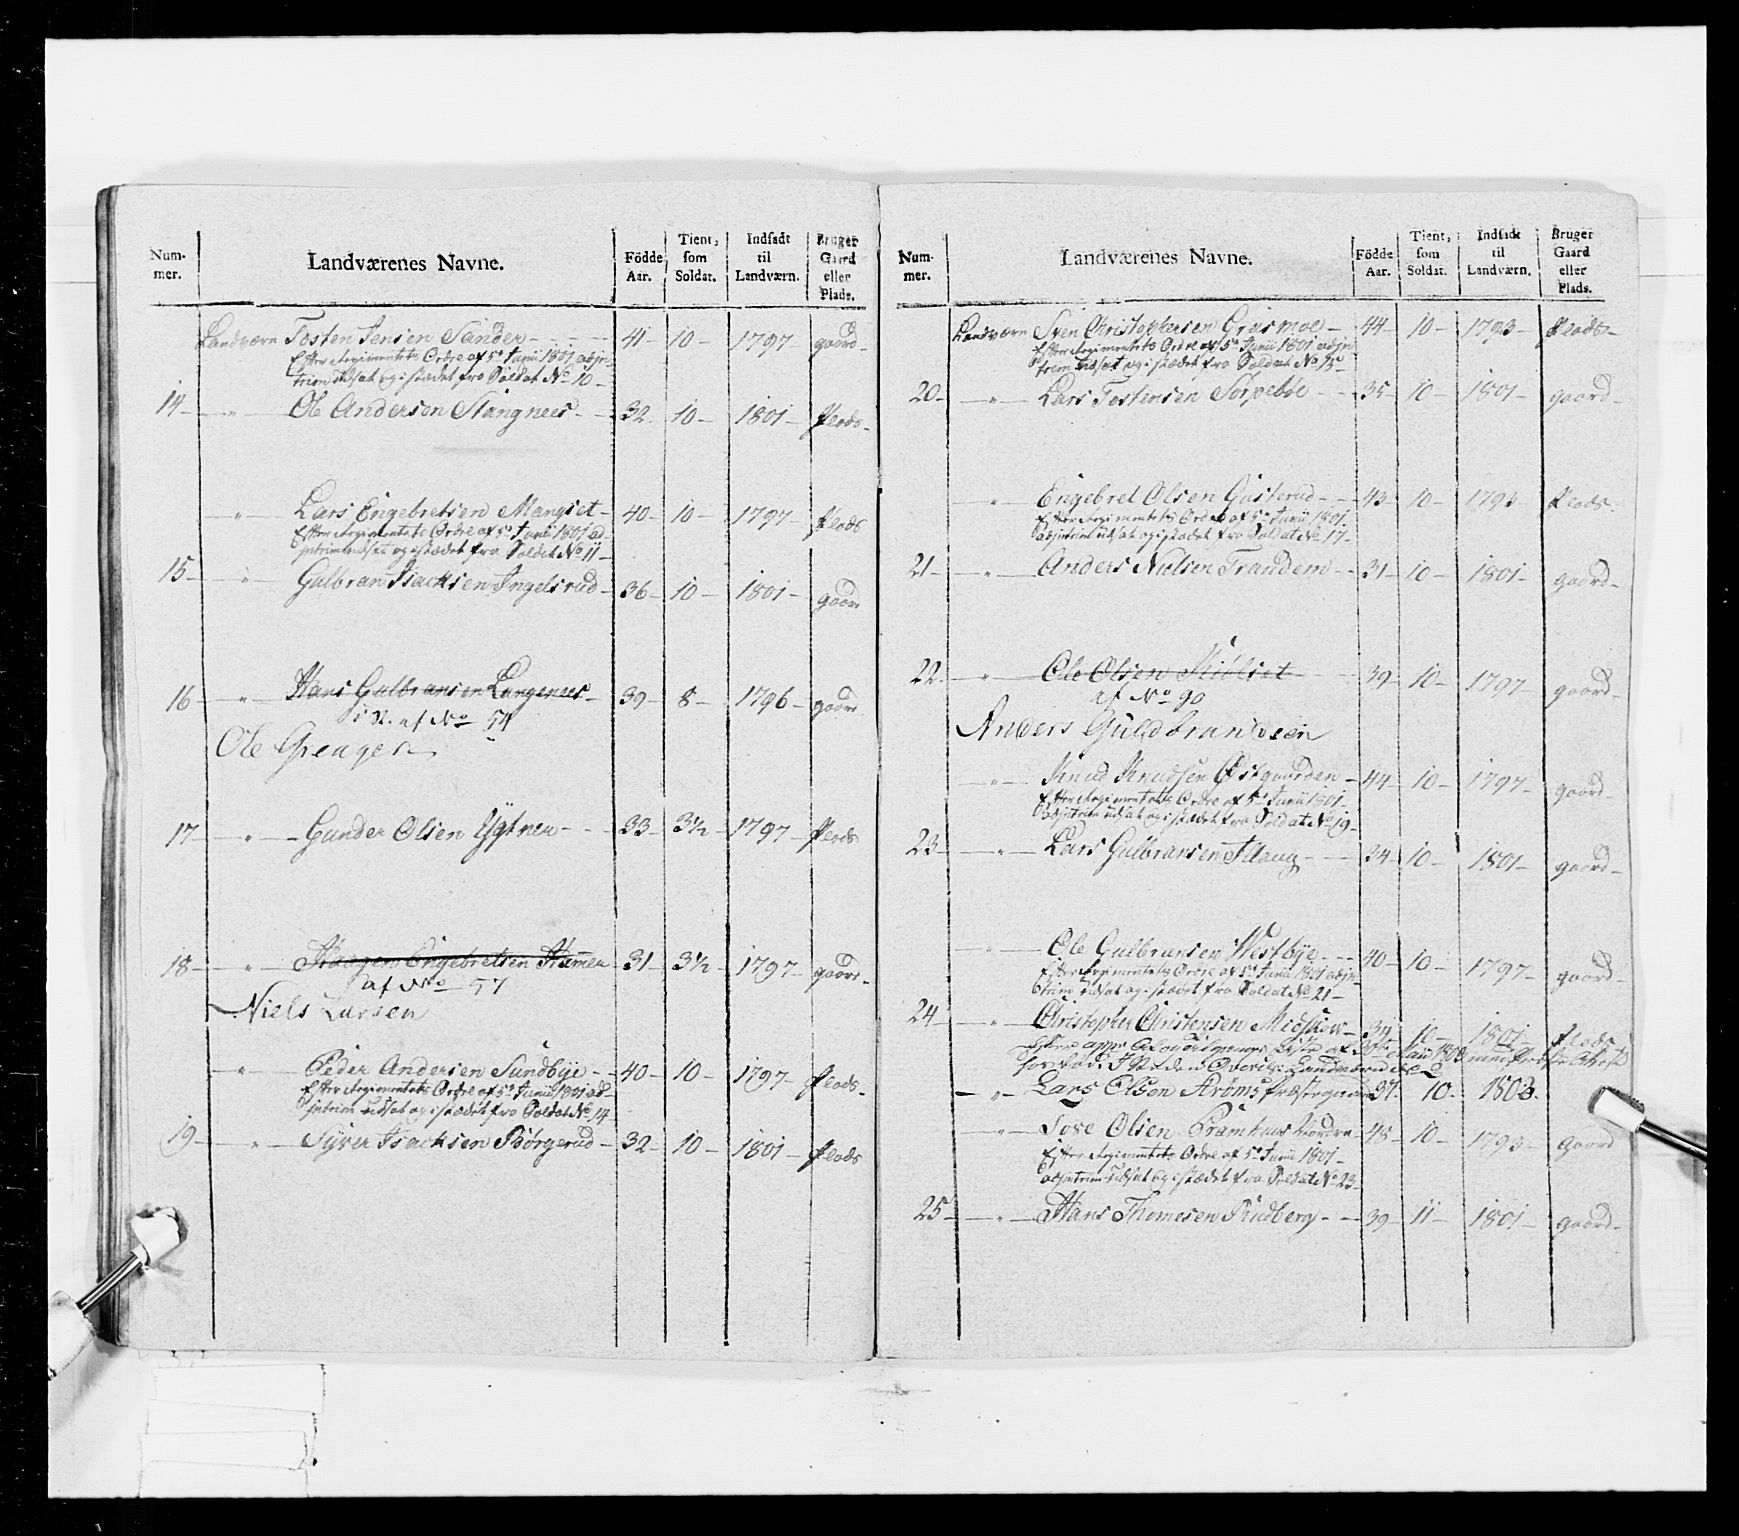 Num-
mer.
Landværenes Navne.
Födde
Aar.
Tient,
som
Soldat.
Indsadt
til
Landværn.
Bruger
Gaard
eller
Plads.
Landværn Tosten Jensen Sander - 41 - 10 - 1797 - gaard -
Efter Regimentets Ordre af 5te Junii 1801 adjn-
trim udsat og istædet fra Soldat No 10 -
14 - " - Ole Andersen Stangnees - 32 - 10 - 1801 - Plads -
- " - Lars Engebretsen Mangset - 40 - 10 - 1797 - Plads
Efter Regimentets Ordre af 5te Junii 1801 ad-
jntrim udsat og istædet fra Soldat No 11 -
15 - " - Gulbran Isachsen Ingelsrud - 36 - 10 - 1801 - gaard
16 - " - Hans Gulbransen Langenees - 39 - 8 - 1796 - gaard
af No 54
Ole
17 - " - Gunder Olsen - 33 - 3½ - 1797 - Plads
18 - " - Haagen Engebretsen - 31 - 3½ - 1797 - gaard -
af No 57
Niels Larsen
- " - Peder Andersen Sundbye - 40 - 10 - 1797 - Plads -
Efter Regimentets Ordre af 5te Junii 1801 ad-
jntrim udsat og istædet fra Soldat No 14
19 - " - Syver Isachsen Børgerud - 32 - 10 - 1801 - Plads
Num-
mer.
Landværenes Navne.
Födde
Aar.
Tient,
som
Soldat.
Indsadt
til
Landværn.
Bruger
Gaard
eller
Plads.
Landværn Sven Christophersen Grasmoe - 44 - 10 - 1793 - Plads -
Efter Regimentets Ordre af 5te Junii 1801 adjn-
trim udsat og istædet fra Soldat No 15
20 - " - Lars Tostensen - 35 - 10 - 1801 - gaard -
- " - Engebret Olsen Gusterud - 43 - 10 - 1793 - Plads -
Efter Regimentets Ordre af 5te Junii 1801
adjntrim udsat og istædet fra Soldat No 17 -
21 - " - Anders Nielsen Trandem - 31 - 10 - 1801 - gaard -
22 - " - Ole Olsen Kiølset - 39 - 10 - 1797 - gaard -
af No 90
Anders Guldbrandsen
- " - Knud Knudsen Østgaarden - 44 - 10 - 1797 - gaard -
Efter Regimentets Ordre af 5te Junii 1801
adjntrim udsat og istædet fra Soldat No 19 -
23 - " - Lars Gulbransen Haug - 34 - 10 - 1801 - gaard -
- " - Ole Gulbransen Westbye - 40 - 10 - 1797 - gaard -
Efter Regimentets Ordre af 5te Junii 1801 adjn-
trim udsat og istædet fra Soldat No 21 -
24 - " - Christopher Christensen Midskov - 34 - 10 - 1801 - Plads
- " - Lars Olsen Strøms Præstegaard 37. 10. 1803.
- " - Tove Olsen Nordre - 48 - 10 - 1793 - Gaard
Efter Regimentets Ordre af 5te Junii 1801 -
adjntrim udsat og istædet fra Soldat No 23 -
25 - " - Hans Thomesen Rudberg - 39 - 11 - 1801 - gaard -